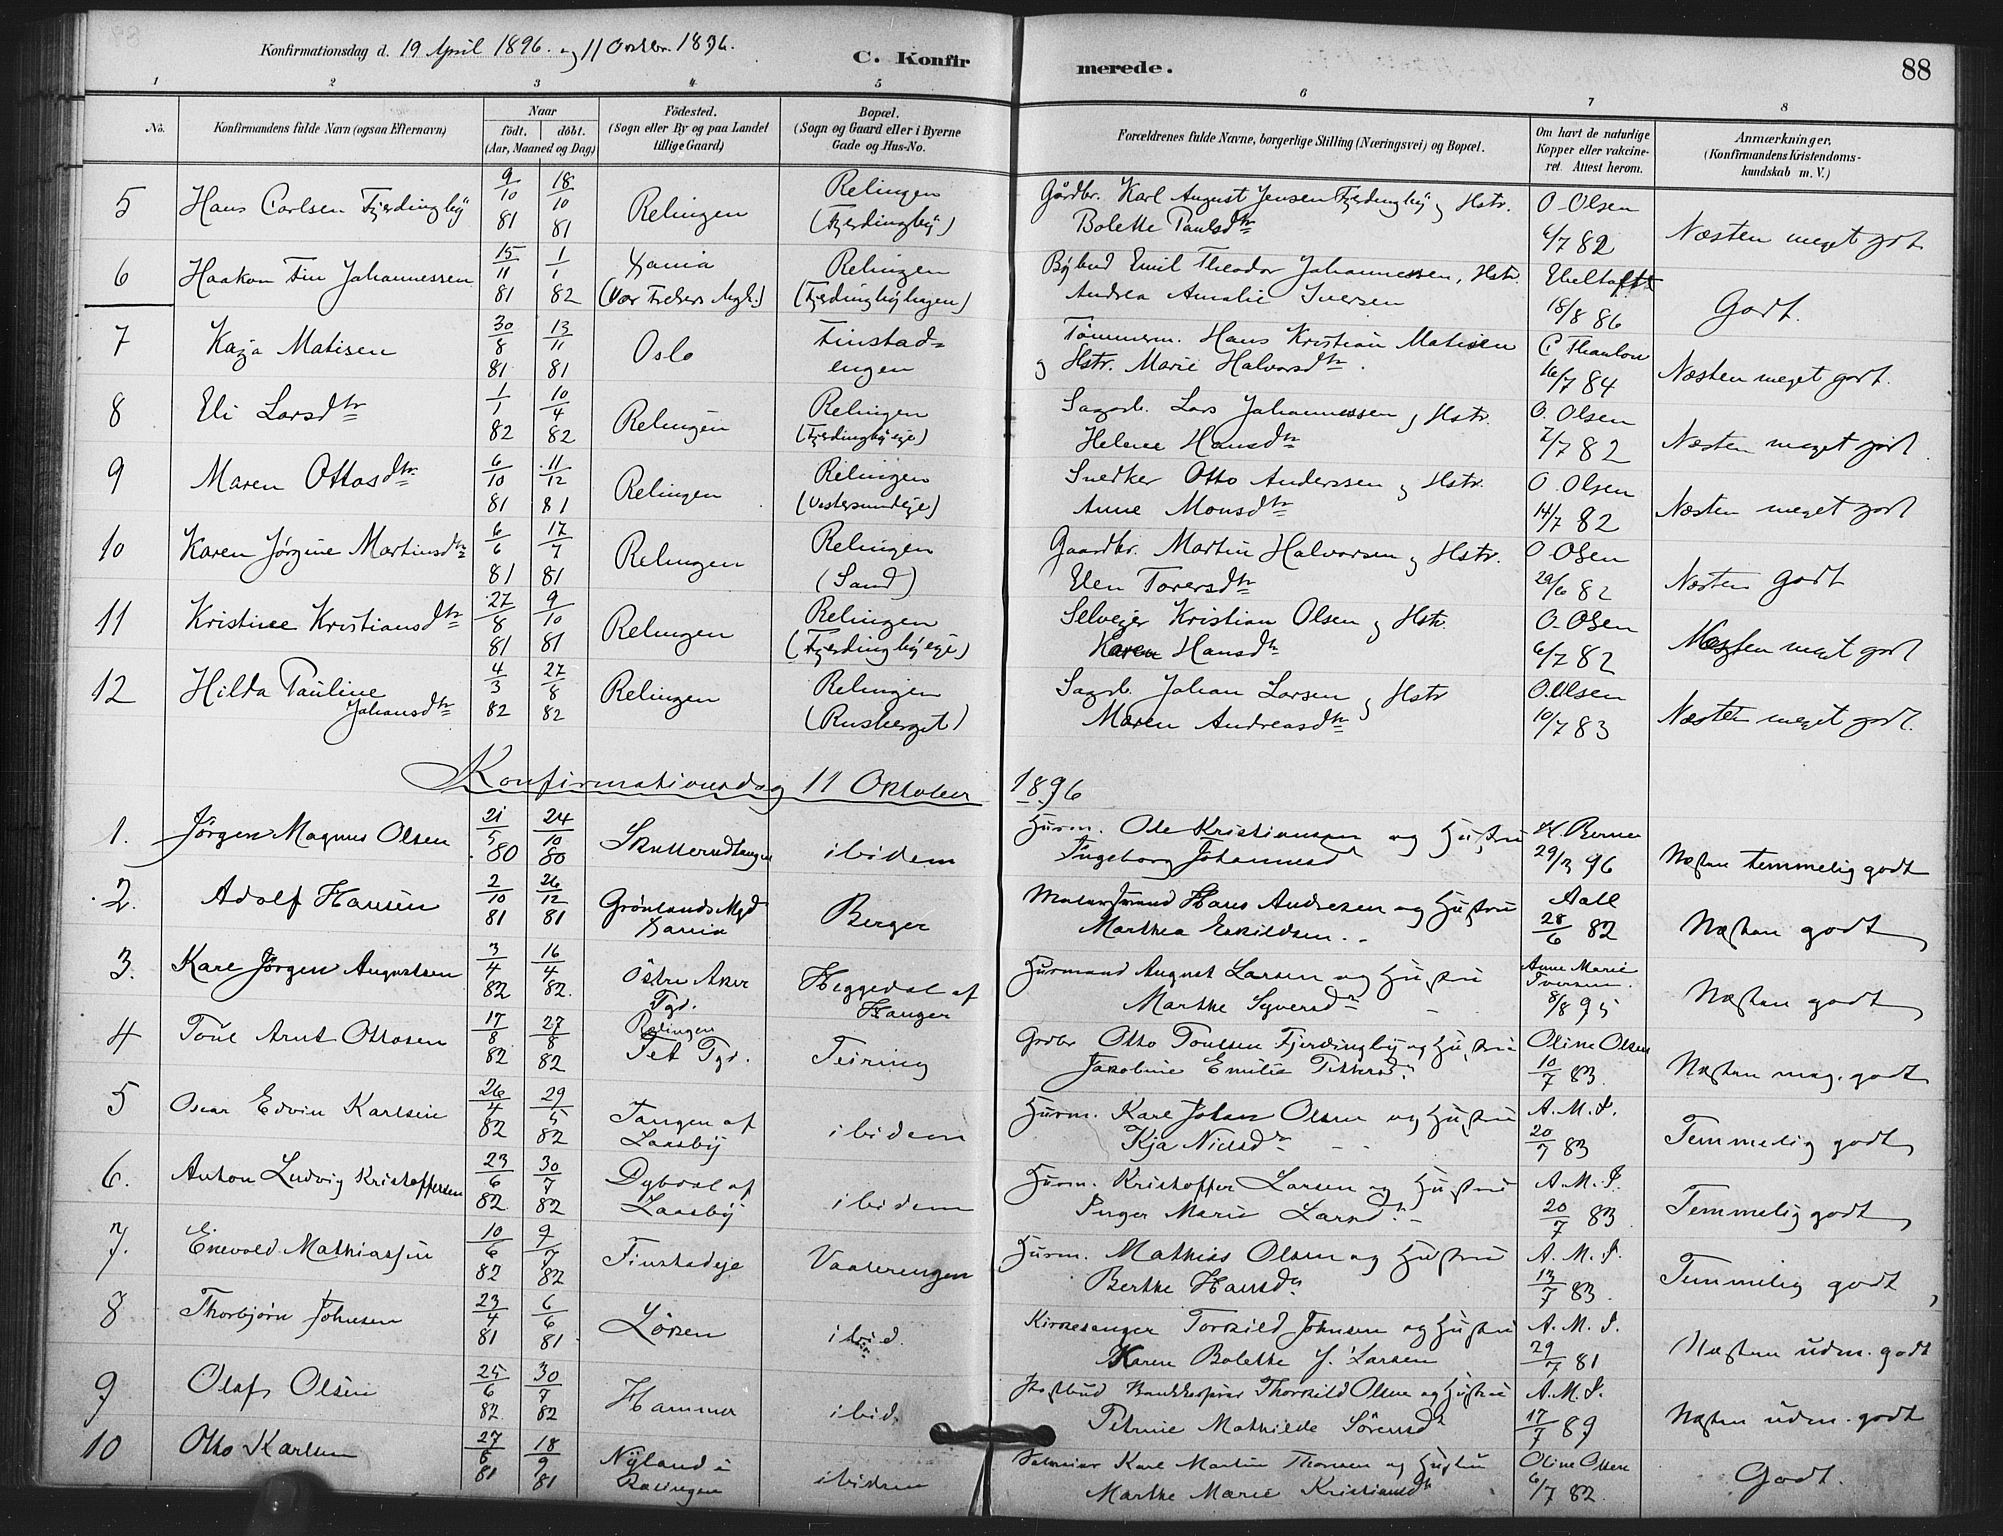 Konfirmationsdag d. 19 April 1896. og 11 Octbr. 1896.
C. Konfirmerede.
88
1 2 3 4 5 6 7 8
No. Konfirmandens fulde Navn (ogsaa Efternavn) Naar født. døbt. (Aar, Maaned og Dag) Födested. (Sogn eller By og paa Landet tillige Gaard) Bopæl. (Sogn og Gaard eller i Byerne Gade og Hus-No. Forældrenes fulde Navne, borgerlige Stilling (Næringsvei) og Bopæl. Om havt de naturlige Kopper eller vakcineret. Attest herom. Anmærkninger. (Konfirmandens Kristendomskundskab m. V.)
5 Hans Carlsen Fjerdingby 9/10 81 18/10 81 Relingen Relingen (Fjerdingby) Gårdbr. Karl August Jensen Fjerdingby og Hstr. Bolette Paulsdtr O. Olsen 6/7 82 Næsten meget godt
6 Haakon Fin Johannessen 15/11 81 1/1 82 Xania (Vor Frelsers Mgh.) Relingen (Fjerdingbyhagen) Bybud Emil Theodor Johannessen, Hstr. Andrea Amalie Iversen Ebeltoft 18/8 86 Godt.
7 Kaja Matisen 30/8 81 13/11 81 Oslo Finstadengen Tømmerm. Hans Kristian Matisen og Hstr. Marie Halvorsdtr. C Thaulow 16/7 84 Næsten meget godt.
8 Eli Larsdtr 1/1 82 10/4 82 Relingen Relingen (Fjerdingby eje) Sagarb. Lars Johannessen og Hstr. Helene Hansdtr O. Olsen 7/7 82 Næsten meget godt
9 Maren Ottosdtr 6/10 81 11/12 81 Relingen Relingen (Vestersundeje) Snedker Otto Anderssen og Hstr. Anne Monsdtr O. Olsen 14/7 82 Næsten meget godt
10 Karen Jørgine Martinsdtr 6/6 81 17/7 81 Relingen Relingen (Sand) Gaardbr. Martin Halvorsen og Hstr. Elen Toversdtr O. Olsen 29/6 82 Næsten godt
11 Kristine Kristiansdtr 27/8 81 9/10 81 Relingen Relingen (Fjerdingby eje) Selvejer Kristian Olsen og Hstr. Karen Hansdtr O. Olsen 6/7 82 Næsten meget godt
12 Hilda Pauline Johansdtr 4/3 82 27/8 82 Relingen Relingen (Rusberget) Sagarb. Johan Larsen og Hstr Maren Andreasdtr O. Olsen 10/7 83 Næsten meget godt.
Konfirmationsdag 11 Oktober 1896
1. Jørgen Magnus Olsen 21/5 80 24/10 80 Skullerudtangen ibidem Husm. Ole Kristiansen og Hustru Ingeborg Johannesd 29/3 96 Næsten temmelig godt
2. Adolf Hansen 2/10 81 26/12 81 Grønlands Mgd Xania Berger Hans Andresen og Hustru Marthea Eskildsen. Aall 28/6 82 Næsten godt
3. Karl Jørgen Augustsen 3/4 82 16/4 82. Østre Aker Pgd. Heggedal af Hanger Husmand August Larsen og Hustru Marthe Syversdr Anne Marie Iversen. 8/8 95 Næsten godt
4 Toul Arnt Ottosen 17/8 82 27/8 82 Relingen Fet Pgd. Teiring Gdbr Otto Toulsen Fjerdingby og Hustru Jakobine Emilie Pettersdr Oline Olsen 10/7 83. Næsten meg. godt
5 Oscar Edvin Karlsen 26/4 82 29/5 82 Tangen af Laasby ibidem Husm. Karl Johan Olsen og Hustru Kja Nielsdr A. M. I. 20/7 83 Temmelig godt
6. Anton Ludvig Kristoffersen 23/6 82 30/7 82 Dybdal af Laasby ibidem Husm. Kristoffer Larsen og Hustru Inger Marie Larsd. A. M. I. 20/7 83 Temmelig godt
7. Enevold Mathiassen 10/6 82 9/7 82 Finstadeje Vaalerengen Husm. Mathias Olsen og Hustru Berthe Hansdr A. M. I. 13/7 83. Temmelig godt
8 Thorbjørn Johnsen 23/4 81 6/6 81 Løken ibid. Kirkesanger Torkild Johnsen og Hustru Karen Bolette J. Larsen A. M. I. 29/7 81 Næsten udm. godt
9 Olaf Olsen 25/6 82 30/7 82 Hammer ibid. Thorkild Olsen og Hustru Petrine Mathilde Sörensd A. M. I. 17/7 89 Næsten udm. godt
10 Otto Karlsen 27/8 81 18/9 81 Nyland i Rælingen ibidem Karl Martin Thorsen og Hustru Marthe Marie Kristiansdr Oline Olsen 6/7 82. Godt.